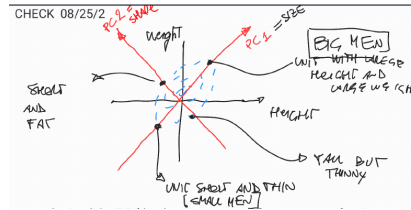 CHECK 08/25/2
PC2 = SHAPE
Weight
PC1 = SIZE
BIG MEN
UNIT WITH LARGE
HEIGHT AND
LARGE WEIGH
SHORT
AND
FAT
HEIGHT
TALL BUT
THINNY
UNIT SHORT AND THIN
[SMALL MEN]